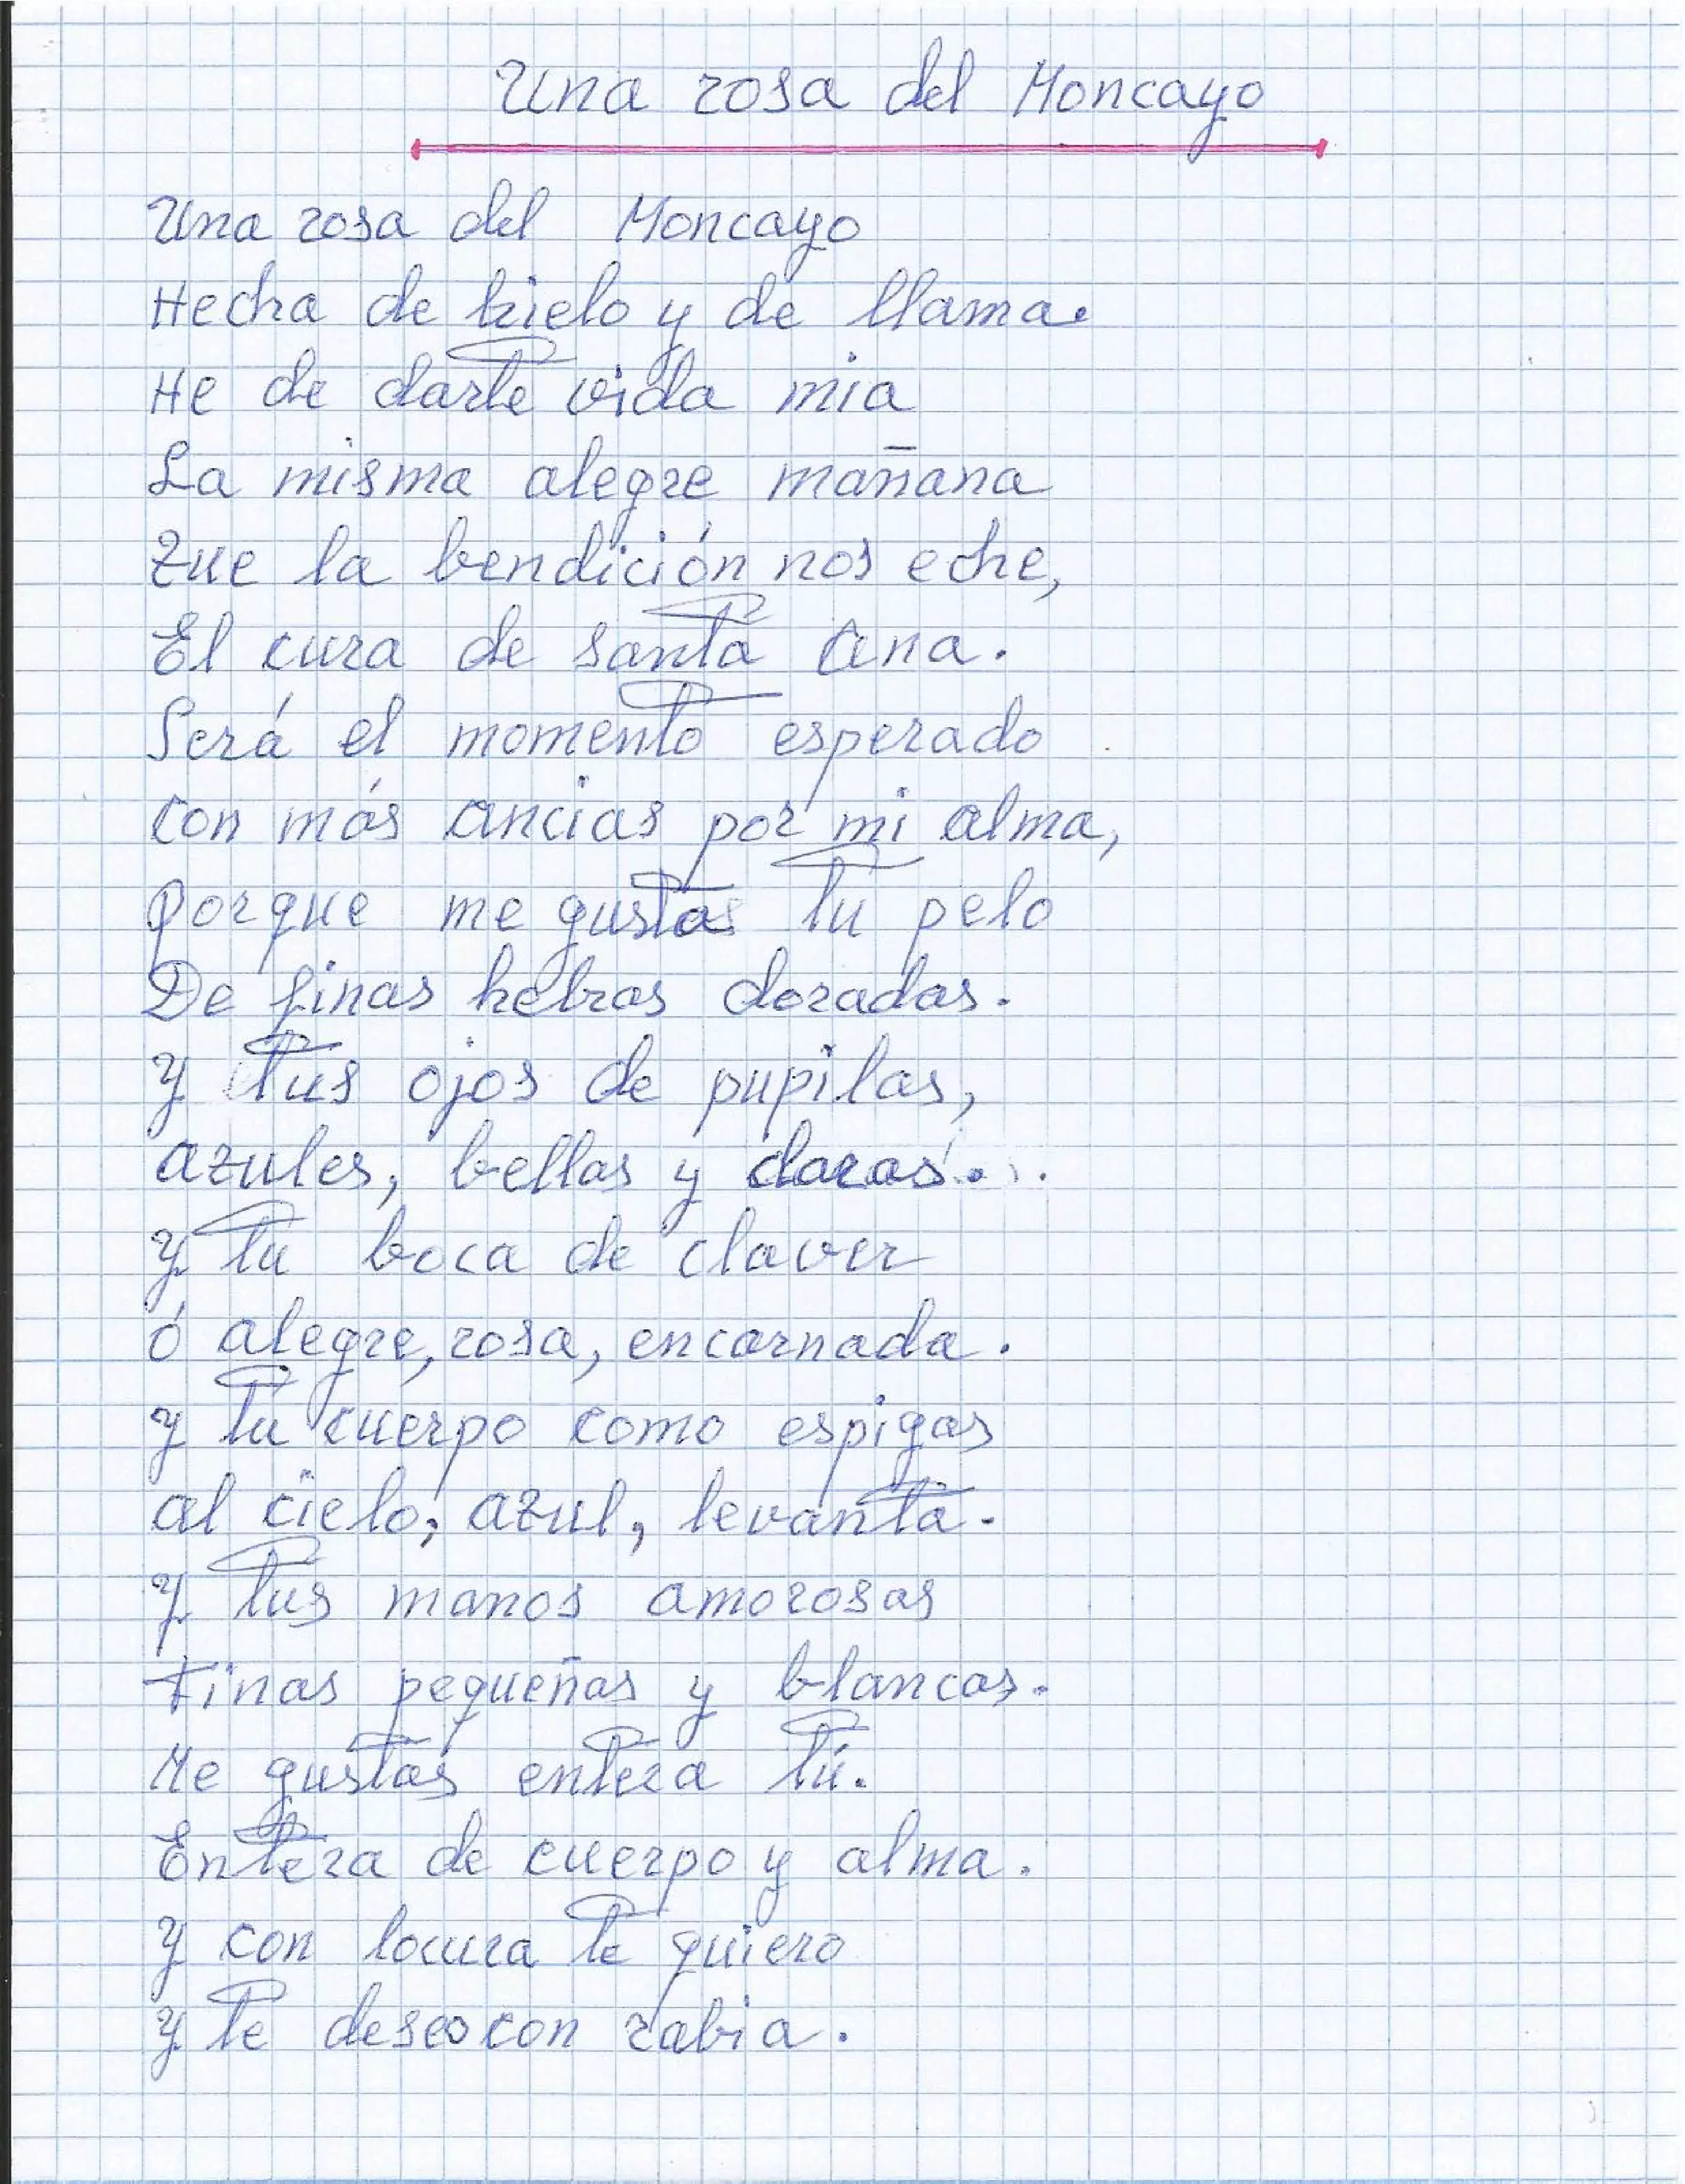 Una rosa del Moncayo
Una rosa del Moncayo
Hecha de hielo y de llama.
He de darte vida mia
La misma alegre mañana
Que la bendición nos eche,
El cura de santa Ana.
Será el momento esperado
con más ancias por mi alma,
porque me gustas tu pelo
De finas hebras doradas.
y tus ojos de pupilas,
azules, bellas y claras...
y tu boca de claver
ó alegre, rosa, encarnada.
y tu cuerpo como espigas
al cielo, azul, levanta.
y tus manos amorosas
Finas pequeñas y blancas.
Me gustas entera tú.
Entera de cuerpo y alma.
y con locura te quiero
y te deseo con rabia.